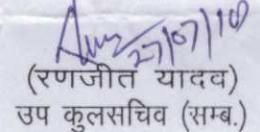 27/07/18
(रणजीत यादव)
उप कुलसचिव (सम्ब.)